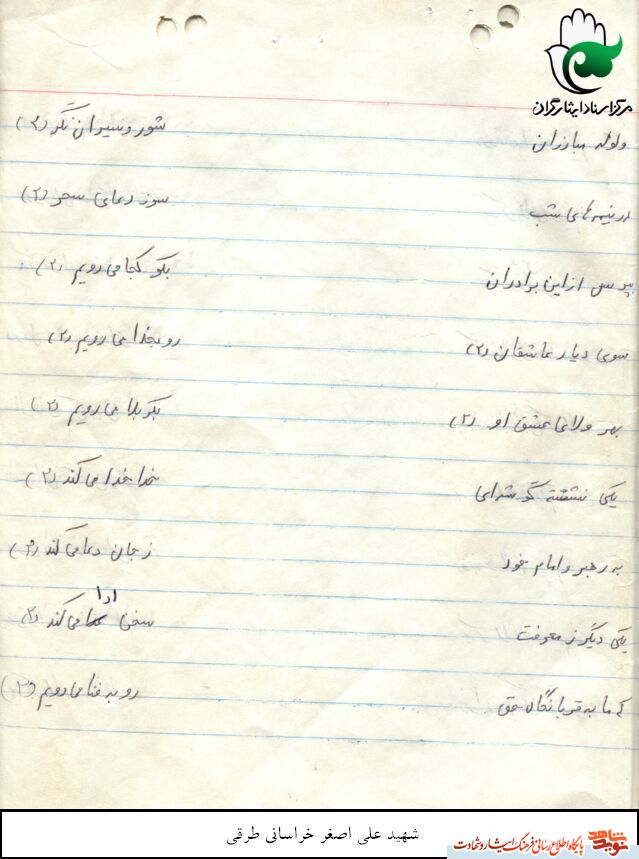 مرکز اسناد ایثارگران
ولوله مبارزان شور دلیران نگر (۲)
در نیمه های شب سوز دعای سحر (۲)
بپرس از این برادران بگو کجا می رویم (۲)
سوی دیار عاشقان (۲) رو بخدا می رویم (۲)
بهر ولای عشق او (۲) بکربلا می رویم (۲)
یکی نشسته گوشه ای خدا خدا می کند (۲)
به رهبر و امام خود ز جان دعا می کند (۲)
یکی دیگر ز معرفت سخن ادا می کند (۲)
که ما به قربانگاه حق رو به فنا می رویم (۲)
شهید علی اصغر خراسانی طرقی
نوید شاهد
پایگاه اطلاع رسانی فرهنگ ایثار و شهادت